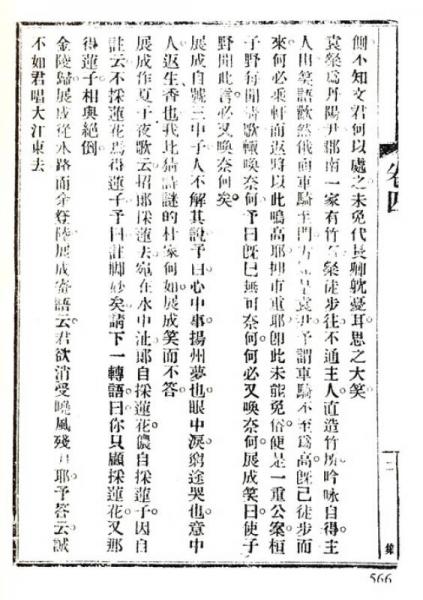 側不知文君何以處之未免代長卿躭憂耳思之大笑
袁粲爲丹陽尹郡南一家有竹粲徒步往不通主人直造竹所吟咏自得主
人出笑語歡然俄而車騎至門方知是袁尹予謂車騎不至爲高旣已徒步而
來何必乘軒而返將以此鳴高耶抑市重耶卽此未能免俗便是一重公案桓
子野每聞淸歌輒喚奈何予曰旣已無可奈何何必又喚奈何展成笑曰使子
野聞此言必又喚奈何矣
展成自號三中子人不解其說予曰心中事揚州夢也眼中淚窮途哭也意中
人返生香也我比猜詩謎的杜家何如展成笑而不答
展成作夏子夜歌云招郞採蓮去宛在水中沚郞自採蓮花儂自採蓮子因自
註云不採蓮花爲得蓮子予曰註脚妙矣請下一轉語曰你只顧採蓮花又那
得蓮子相與絕倒
金陵歸展成從水路而余登陸展成寄語云君欲消受曉風殘月耶予答云誠
不如君唱大江東去
卷四
566